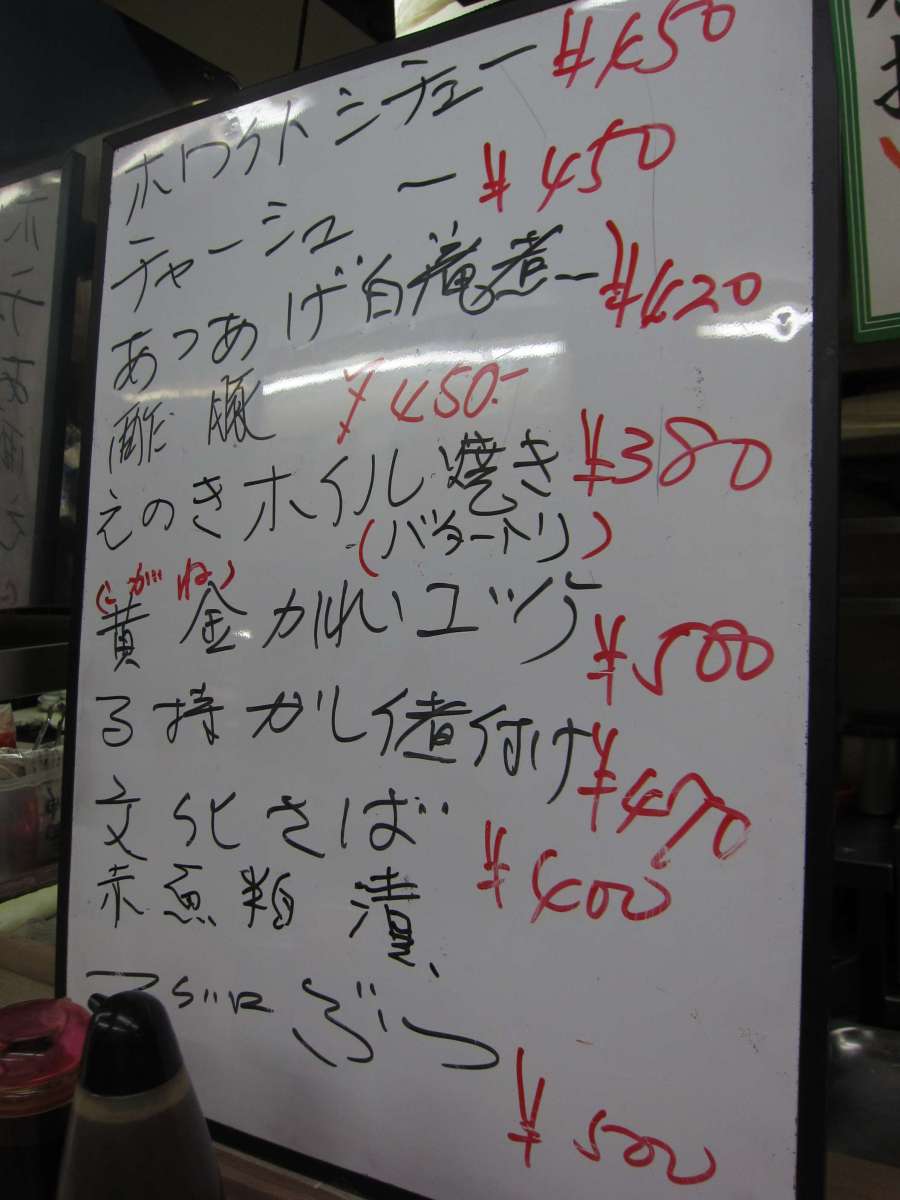 ホワイトシチュー ¥450
チャーシュー ¥450
あつあげ白菜煮 ¥420
酢豚 ¥450.-
えのきホイル焼き ¥380
(バタートリ)
(こがね)
黄金がれいエツケ ¥500
子持がし煮付け ¥470
文化さば ¥400
赤魚粕漬
マグロぶつ
¥500